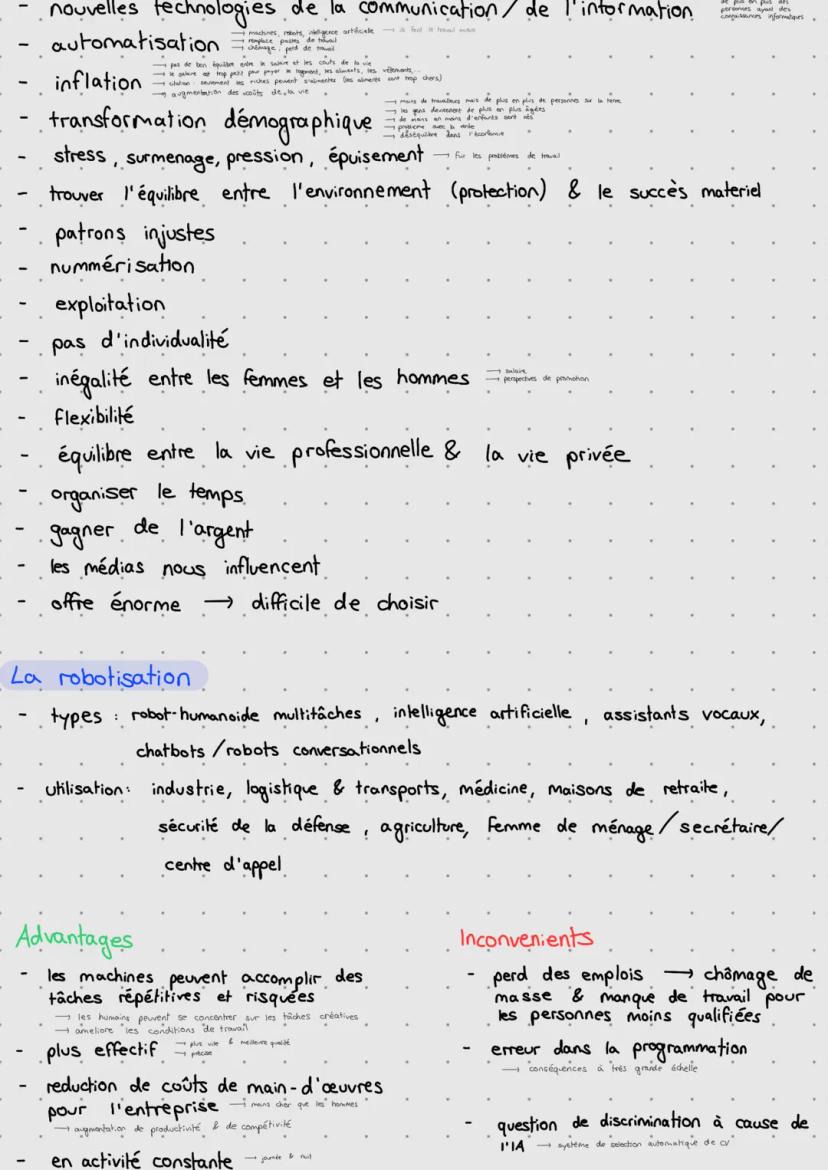 - nouvelles technologies de la communication / de l'information
de plus en plus des
personnes ayant des
connaissances informatiques
- automatisation
→ machines, robots, intelligence artificielle →
→ remplace postes de travail
→ chômage, perd de travail
- inflation
→ pas de bon équilibre entre le salaire et les coûts de la vie
→ le salaire est trop petit pour payer le logement, les aliments, les vêtements,...
→ citation: seulement les riches peuvent s'alimenter (les aliments sont trop chers)
→ augmentation des coûts de la vie
- transformation démographique
→ moins de travailleurs mais de plus en plus de personnes sur la terre
→ les gens deviennent de plus en plus âgées
→ de moins en moins d'enfants sont nés
→ problème avec la rente
→ déséquilibre dans l'économie
- stress, surmenage, pression, épuisement → für les problèmes de travail
- trouver l'équilibre entre l'environnement (protection) & le succès materiel
- patrons injustes
- nummérisation
- exploitation
- pas d'individualité
- inégalité entre les femmes et les hommes
→ salaire
→ perspectives de promotion
- flexibilité
- équilibre entre la vie professionnelle & la vie privée
- organiser le temps
- gagner de l'argent
- les médias nous influencent
- offre énorme → difficile de choisir
La robotisation
- types : robot-humanoide multitâches, intelligence artificielle, assistants vocaux,
chatbots / robots conversationnels
- utilisation: industrie, logistique & transports, médicine, maisons de retraite,
sécurité de la défense, agriculture, femme de ménage / secrétaire /
centre d'appel
Advantages
- les machines peuvent accomplir des
tâches répétitives et risquées
→ les humains peuvent se concentrer sur les tâches créatives
→ améliore les conditions de travail
- plus effectif
→ plus vite & meilleure qualité
→ précise
- reduction de coûts de main-d'œuvres
pour l'entreprise → moins cher que les hommes
→ augmentation de productivité & de compétivité
- en activité constante → journée & nuit
Inconvenients
- perd des emplois → châmage de
masse & manque de travail pour
les personnes moins qualifiées
- erreur dans la programmation
→ conséquences à très grande échelle
- question de discrimination à cause de
l'IA → système de selection automatique de cv